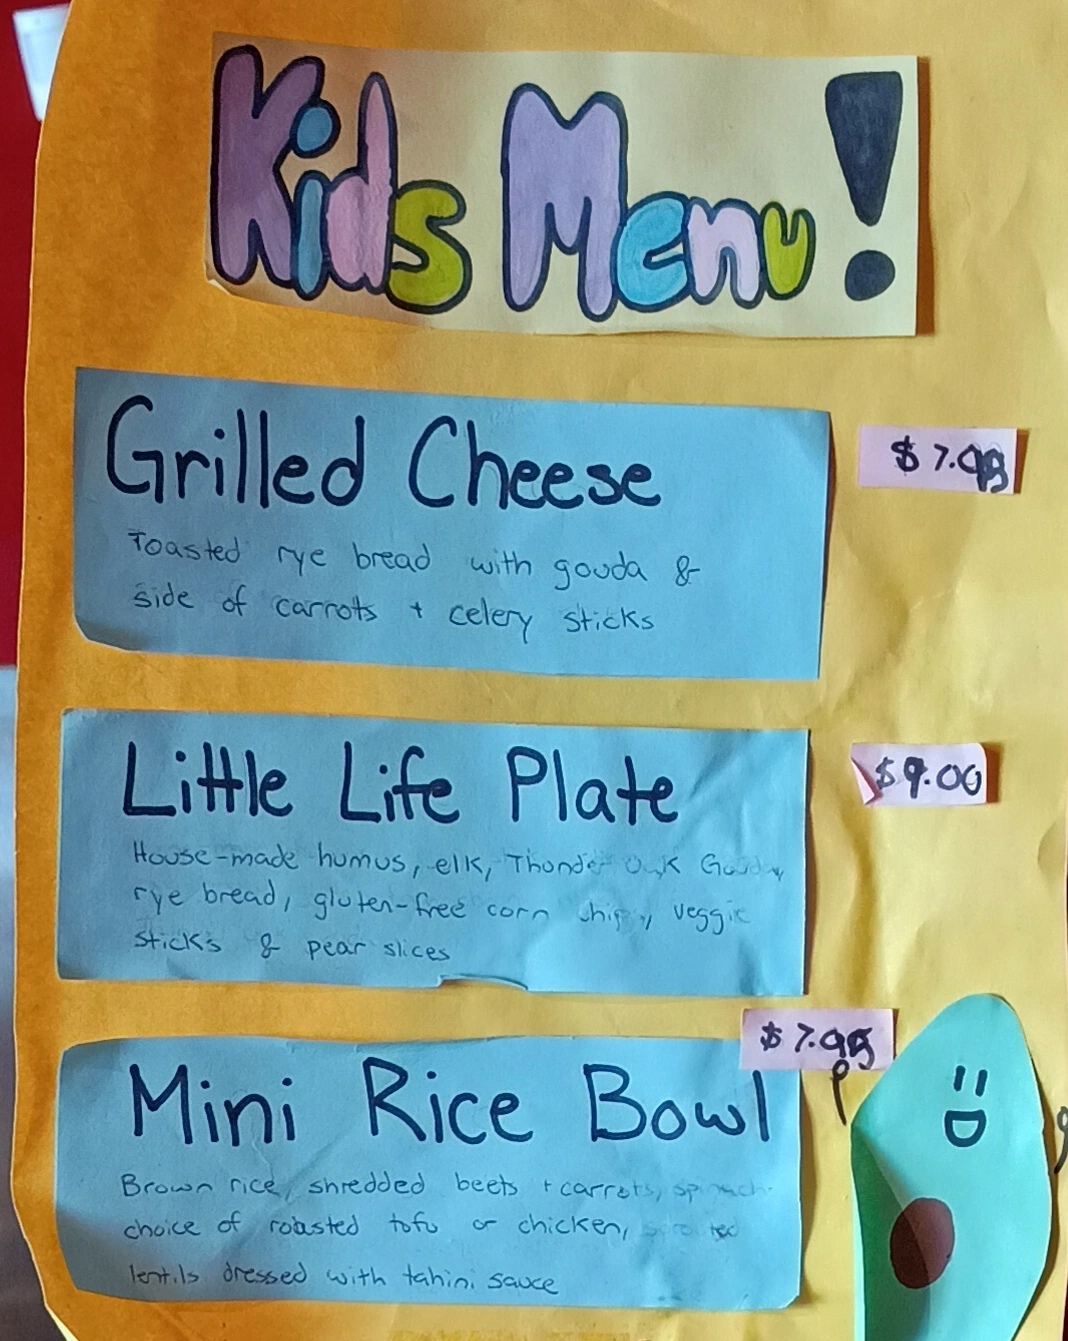 Kids Menu!
Grilled Cheese
Toasted rye bread with gouda &
side of carrots + celery sticks
Little Life Plate
$9.00
House-made humus, elk, Thunder Oak Gouda,
rye bread, gluten-free corn chips, veggie
sticks & pear slices
Mini Rice Bowl
Brown rice, shredded beets + carrots, spinach
choice of roasted tofu or chicken, sprouted
lentils dressed with tahini sauce